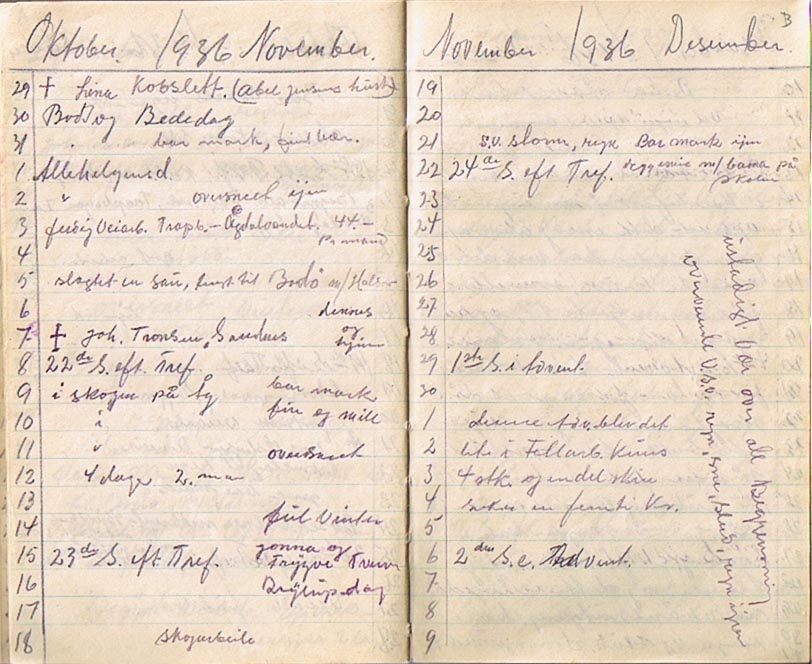 Oktober. 1936 November.
29 † Lina Kobslett. (Abel Jensens
30 Bod og Bededag
31 bar mark, fint vær.
1 Allehelgensd.
2 " oversneet igjen
3 ferdig Veiarb. Trapb. - Ågdalvandet. 44.-
pr mand
4
5 slagtet en sau, Bodö m/
6 dennes
7 † Joh. Tronsen, Sandnes og
8 22de S. eft. Tref.
9 i skogen på bar mark
10 " fin og mild
11 " oversneet
12 4 dager 2. man
13
14 full Vinter
15 23de S. eft Tref. Jonna og
Trygve
16 Bryllupsdag
17
18 skogarbeide
November 1936 Desember. 3
19
20
21 S.V. storm, regn Bar mark igjen
22 24de S. eft Tref. m/ barna på
skolen
23
24
25
26
27
28
29 1ste S. i Advent.
30
1 denne blev det
2 lite i
3 4 stk og en del
4 en femti Kr.
5
6 2den S. e. Advent.
7
8
9
ustadigt vær over all Begrepning
V.S.V. regn, sne, slud, regn igjen